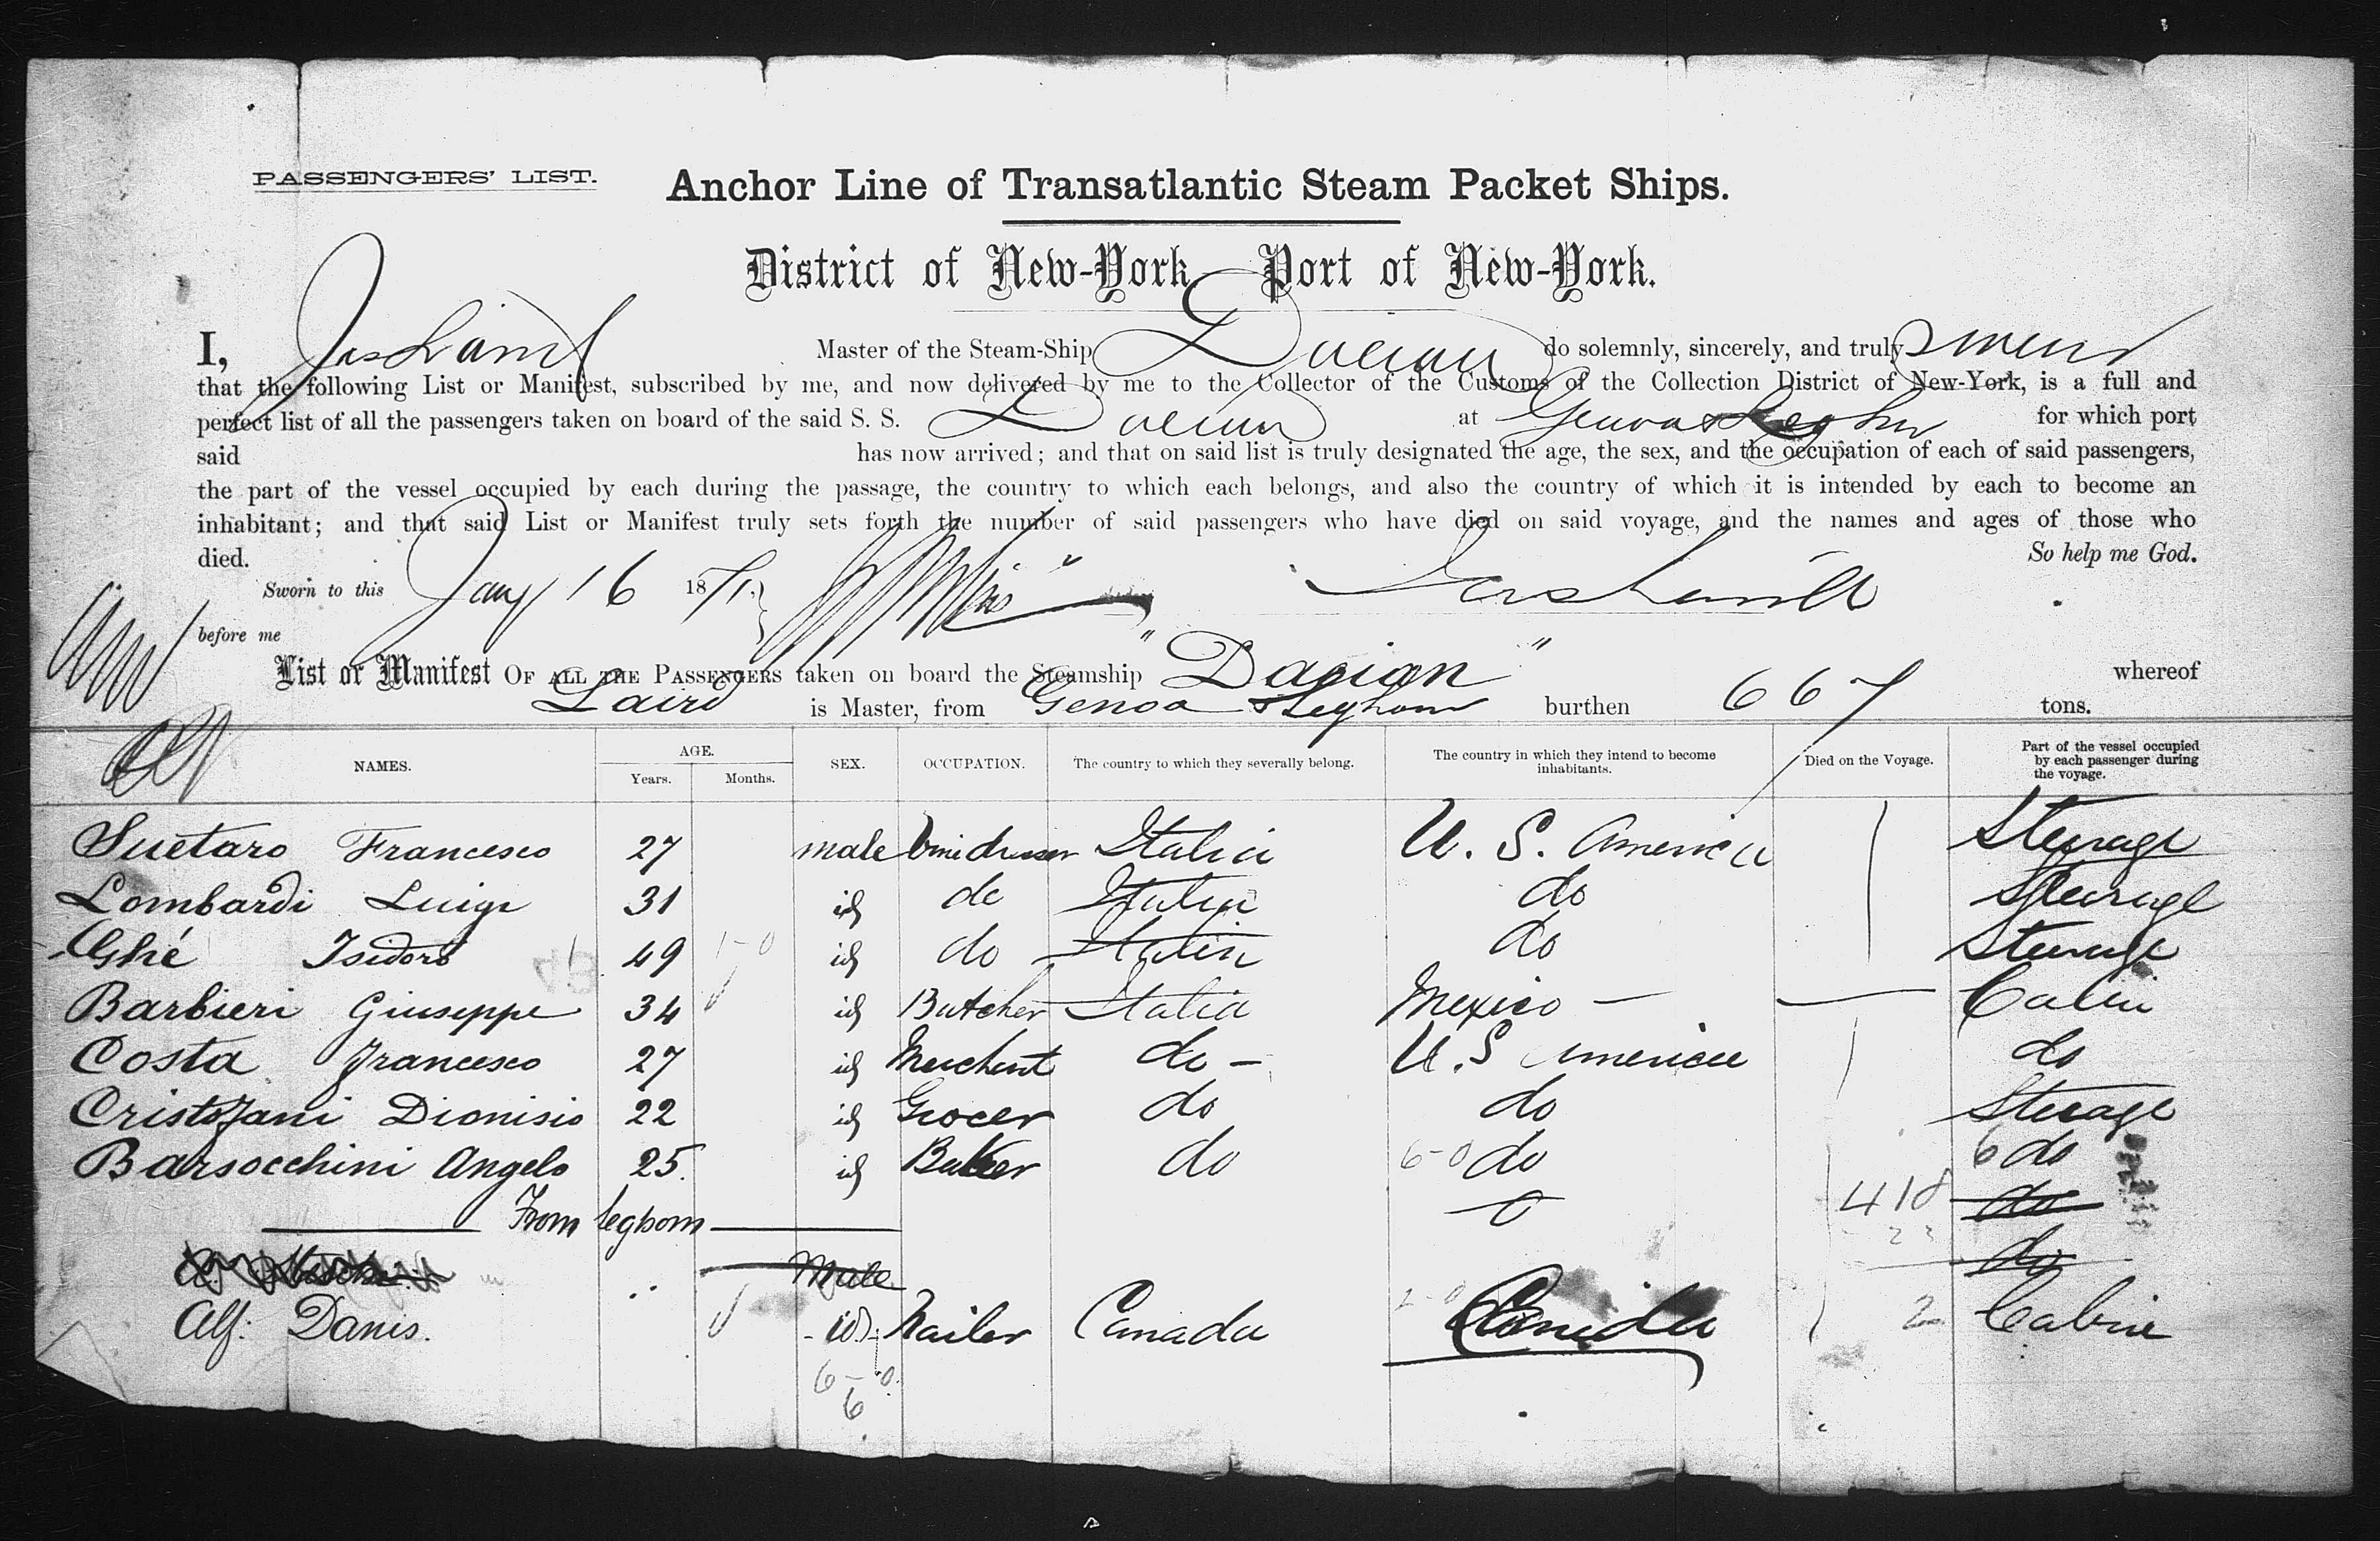 PASSENGERS' LIST.
Anchor Line of Transatlantic Steam Packet Ships.
District of New-York Port of New-York.
I, Jas Laird Master of the Steam-Ship Dacian do solemnly, sincerely, and truly swear
that the following List or Manifest, subscribed by me, and now delivered by me to the Collector of the Customs of the Collection District of New-York, is a full and
perfect list of all the passengers taken on board of the said S. S. Dacian at Genoa & Leghorn for which port
said has now arrived; and that on said list is truly designated the age, the sex, and the occupation of each of said passengers,
the part of the vessel occupied by each during the passage, the country to which each belongs, and also the country of which it is intended by each to become an
inhabitant; and that said List or Manifest truly sets forth the number of said passengers who have died on said voyage, and the names and ages of those who
died. So help me God.
Sworn to this Jany 16 1871 Jas Laird
before me
List or Manifest OF ALL THE PASSENGERS taken on board the Steamship "Dacian" whereof
Laird is Master, from Genoa & Leghorn burthen 667 tons.
NAMES. AGE. Years. Months. SEX. OCCUPATION. The country to which they severally belong. The country in which they intend to become inhabitants. Died on the Voyage. Part of the vessel occupied by each passenger during the voyage.
Suetaro Francesco 27 male Vinedresser Italia U. S. America Steerage
Lombardi Luigi 31 id do Italia do Steerage
Ghé Isidoro 49 1-0 id do Italia do Steerage
Barbieri Giuseppe 34 id Butcher Italia Mexico — Cabin
Costa Francesco 27 id Merchant do — U. S America do
Cristofani Dionisio 22 id Grocer do do Steerage
Barsocchini Angelo 25. id Baker do 6-0 do 6 do
From leghorn 418 do
Male do
Alf: Danis. id. Nailer Canada 2-0 Canada 2 Cabin
6-0.
6